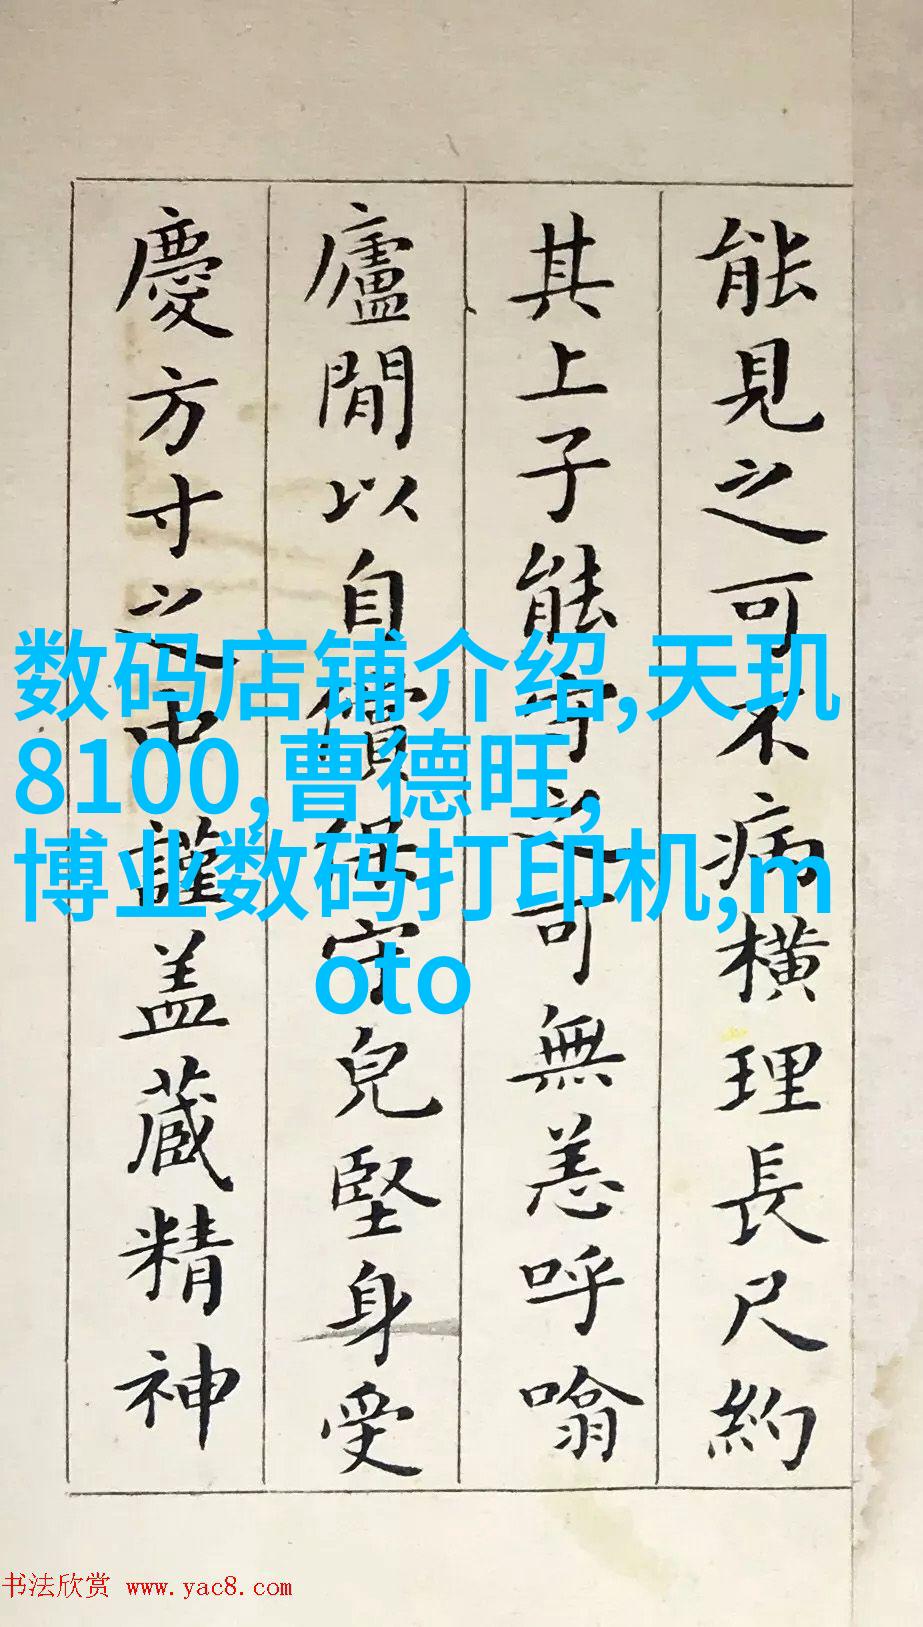 能見之可不病橫理長尺約
其上子能守之可無恙呼噏
廬閒以自償保守兒堅身受
慶方寸之中謹盖藏精神
数码店铺介绍,天玑
8100,曹德旺,
博业数码打印机,m
oto
书法欣赏 www.yac8.com